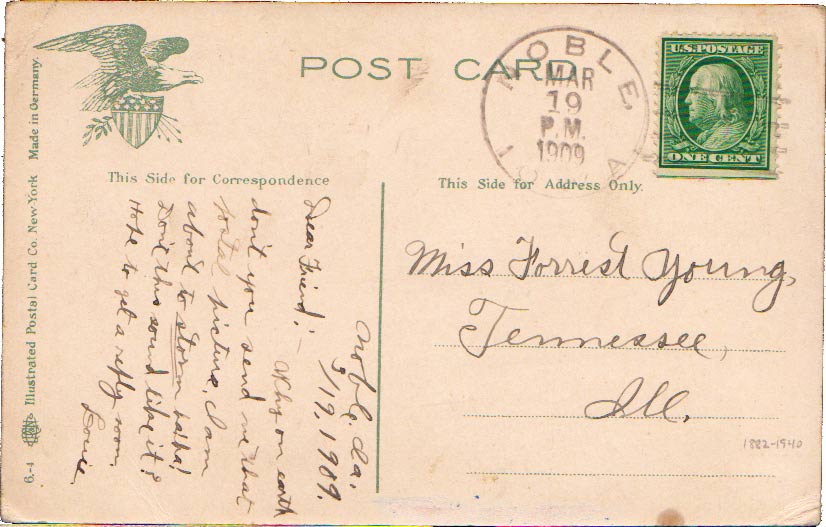 POST CARD
NOBLE,
MAR
19
P.M.
1909
IOWA
U.S.POSTAGE
ONE CENT
This Side for Correspondence
This Side for Address Only.
Noble, Ia.
3/19, 1909.
Dear Friend:— Why on earth
don't you send me that
postal picture, I am
about to storm ha ha!
Don't this sound like it?
Hope to get a reply soon.
Miss Forrest Young,
Tennessee,
Ill.
1882-1940
6-4 Illustrated Postal Card Co. New-York Made in Germany.